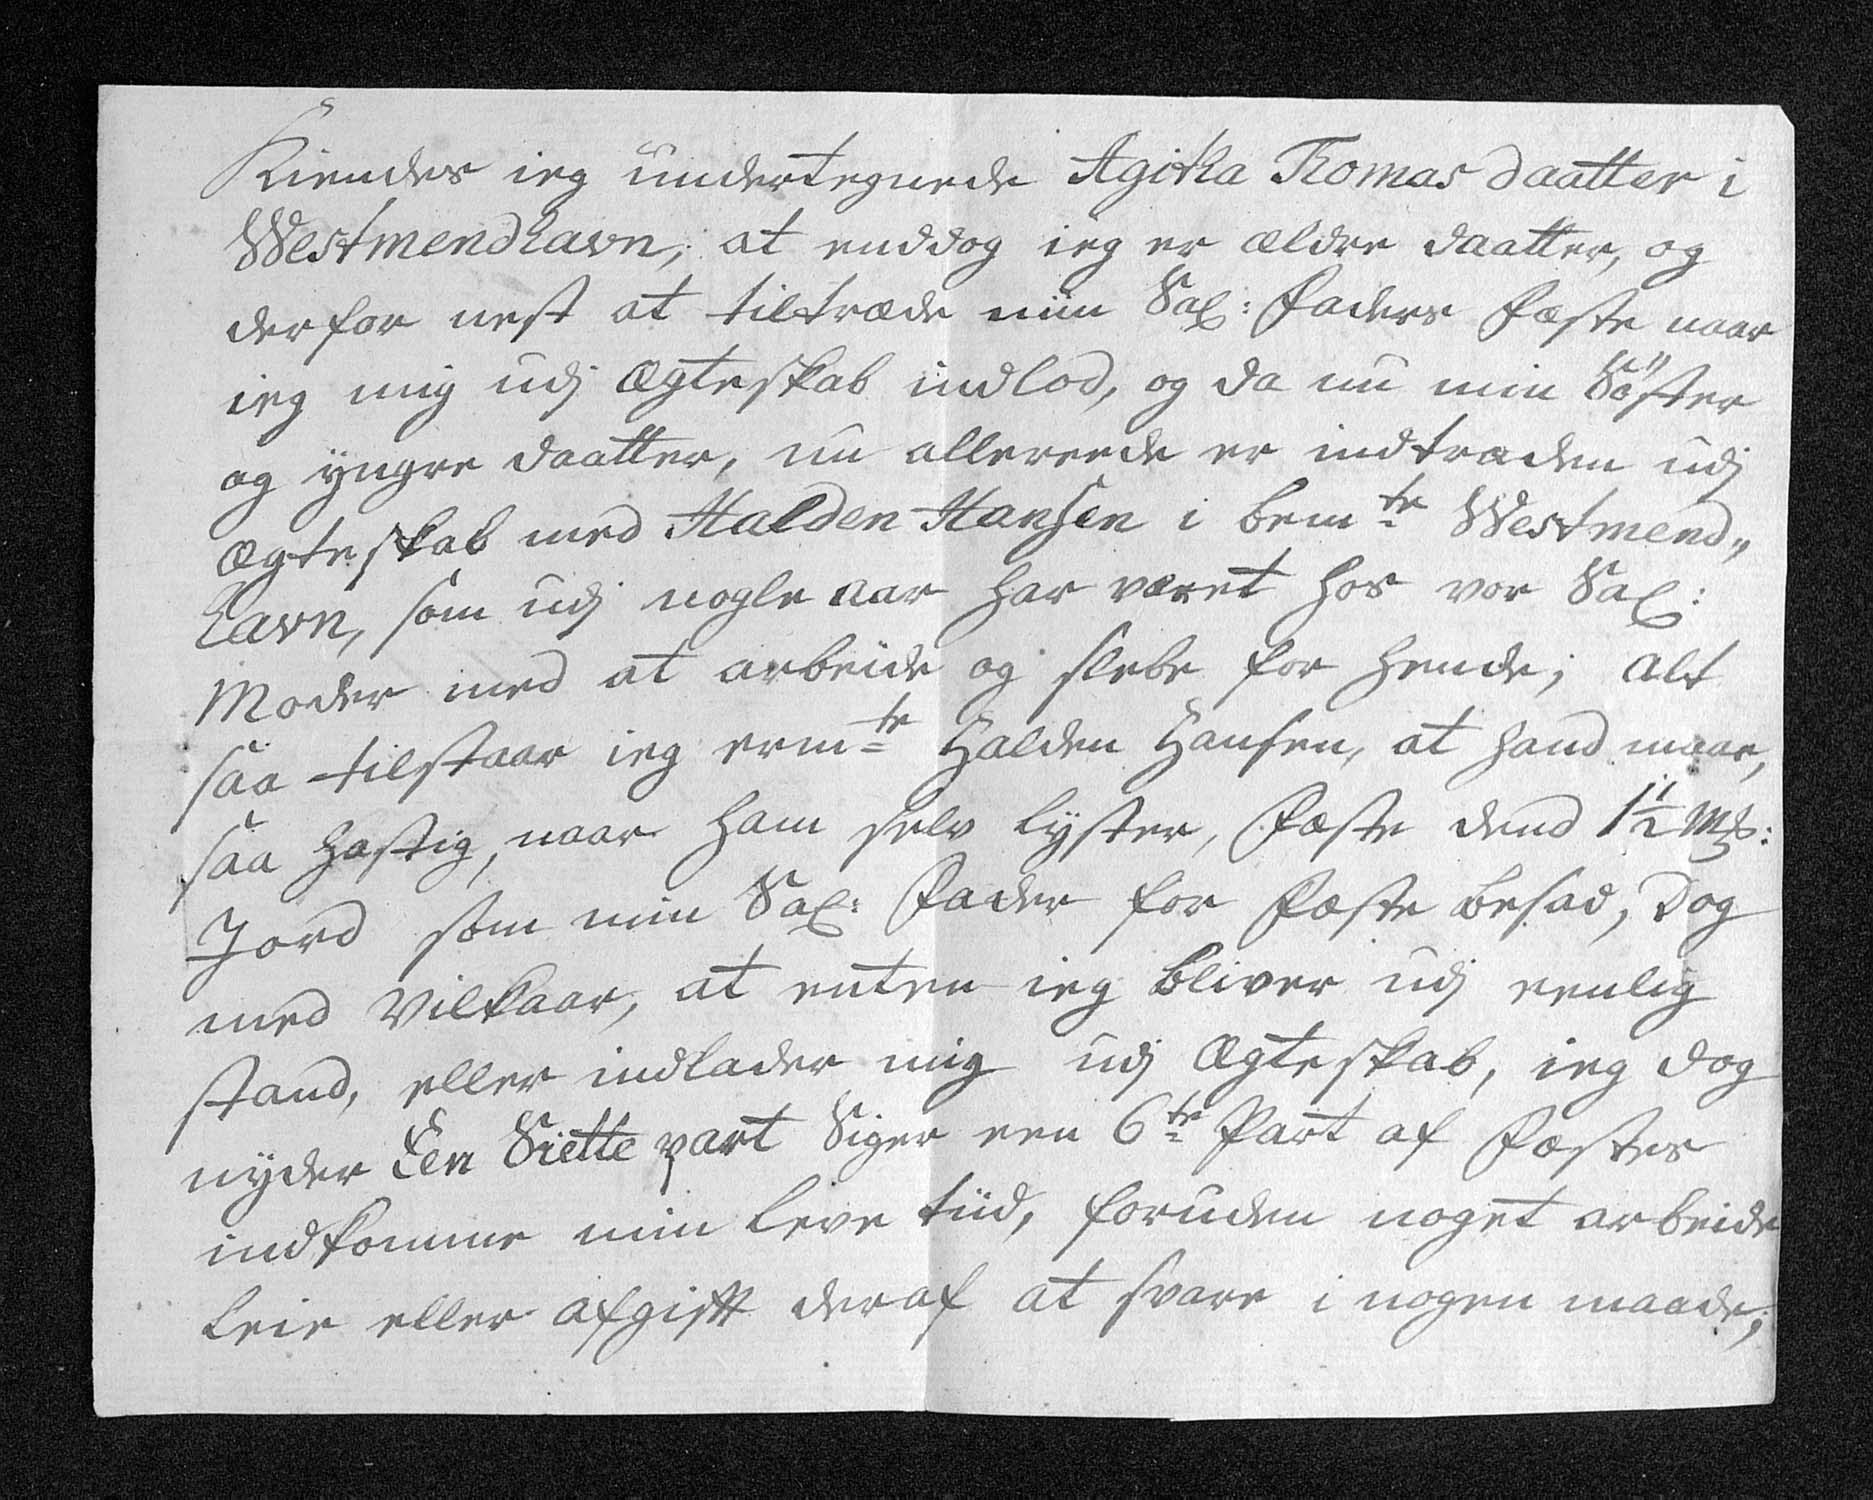 Kiendes ieg undertegnede Agitha Thomas daatter i
Westmendhavn, at enddog ieg er ældre daatter, og
derfor nest at tiltræde min Sal: Faders Fæste naar
ieg mig udj Ægteskab indlod, og da nu min Söster
og yngre daatter, nu allereede er indtraden udj
Ægteskab med Halden Hansen i bemte Westmend„
havn, som udj nogle aar har været hos vor Sal:
Moder med at arbeide og slebe for hende; alt
saa tilstaar ieg ermte Halden Hansen, at hand maae,
saa hastig, naar ham selv lyster, Fæste dend 1½ Mk:
Jord som min Sal: Fader for Fæste besad, Dog
med Vilkaar, at enten ieg bliver udj eenlig
stand, eller indlader mig udj Ægteskab, ieg dog
nyder Een Siette part Siger een 6te Part af Fæstes
indkomme min leve tiid, foruden noget arbeide
leie eller afgifft deraf at svare i nogen maade;